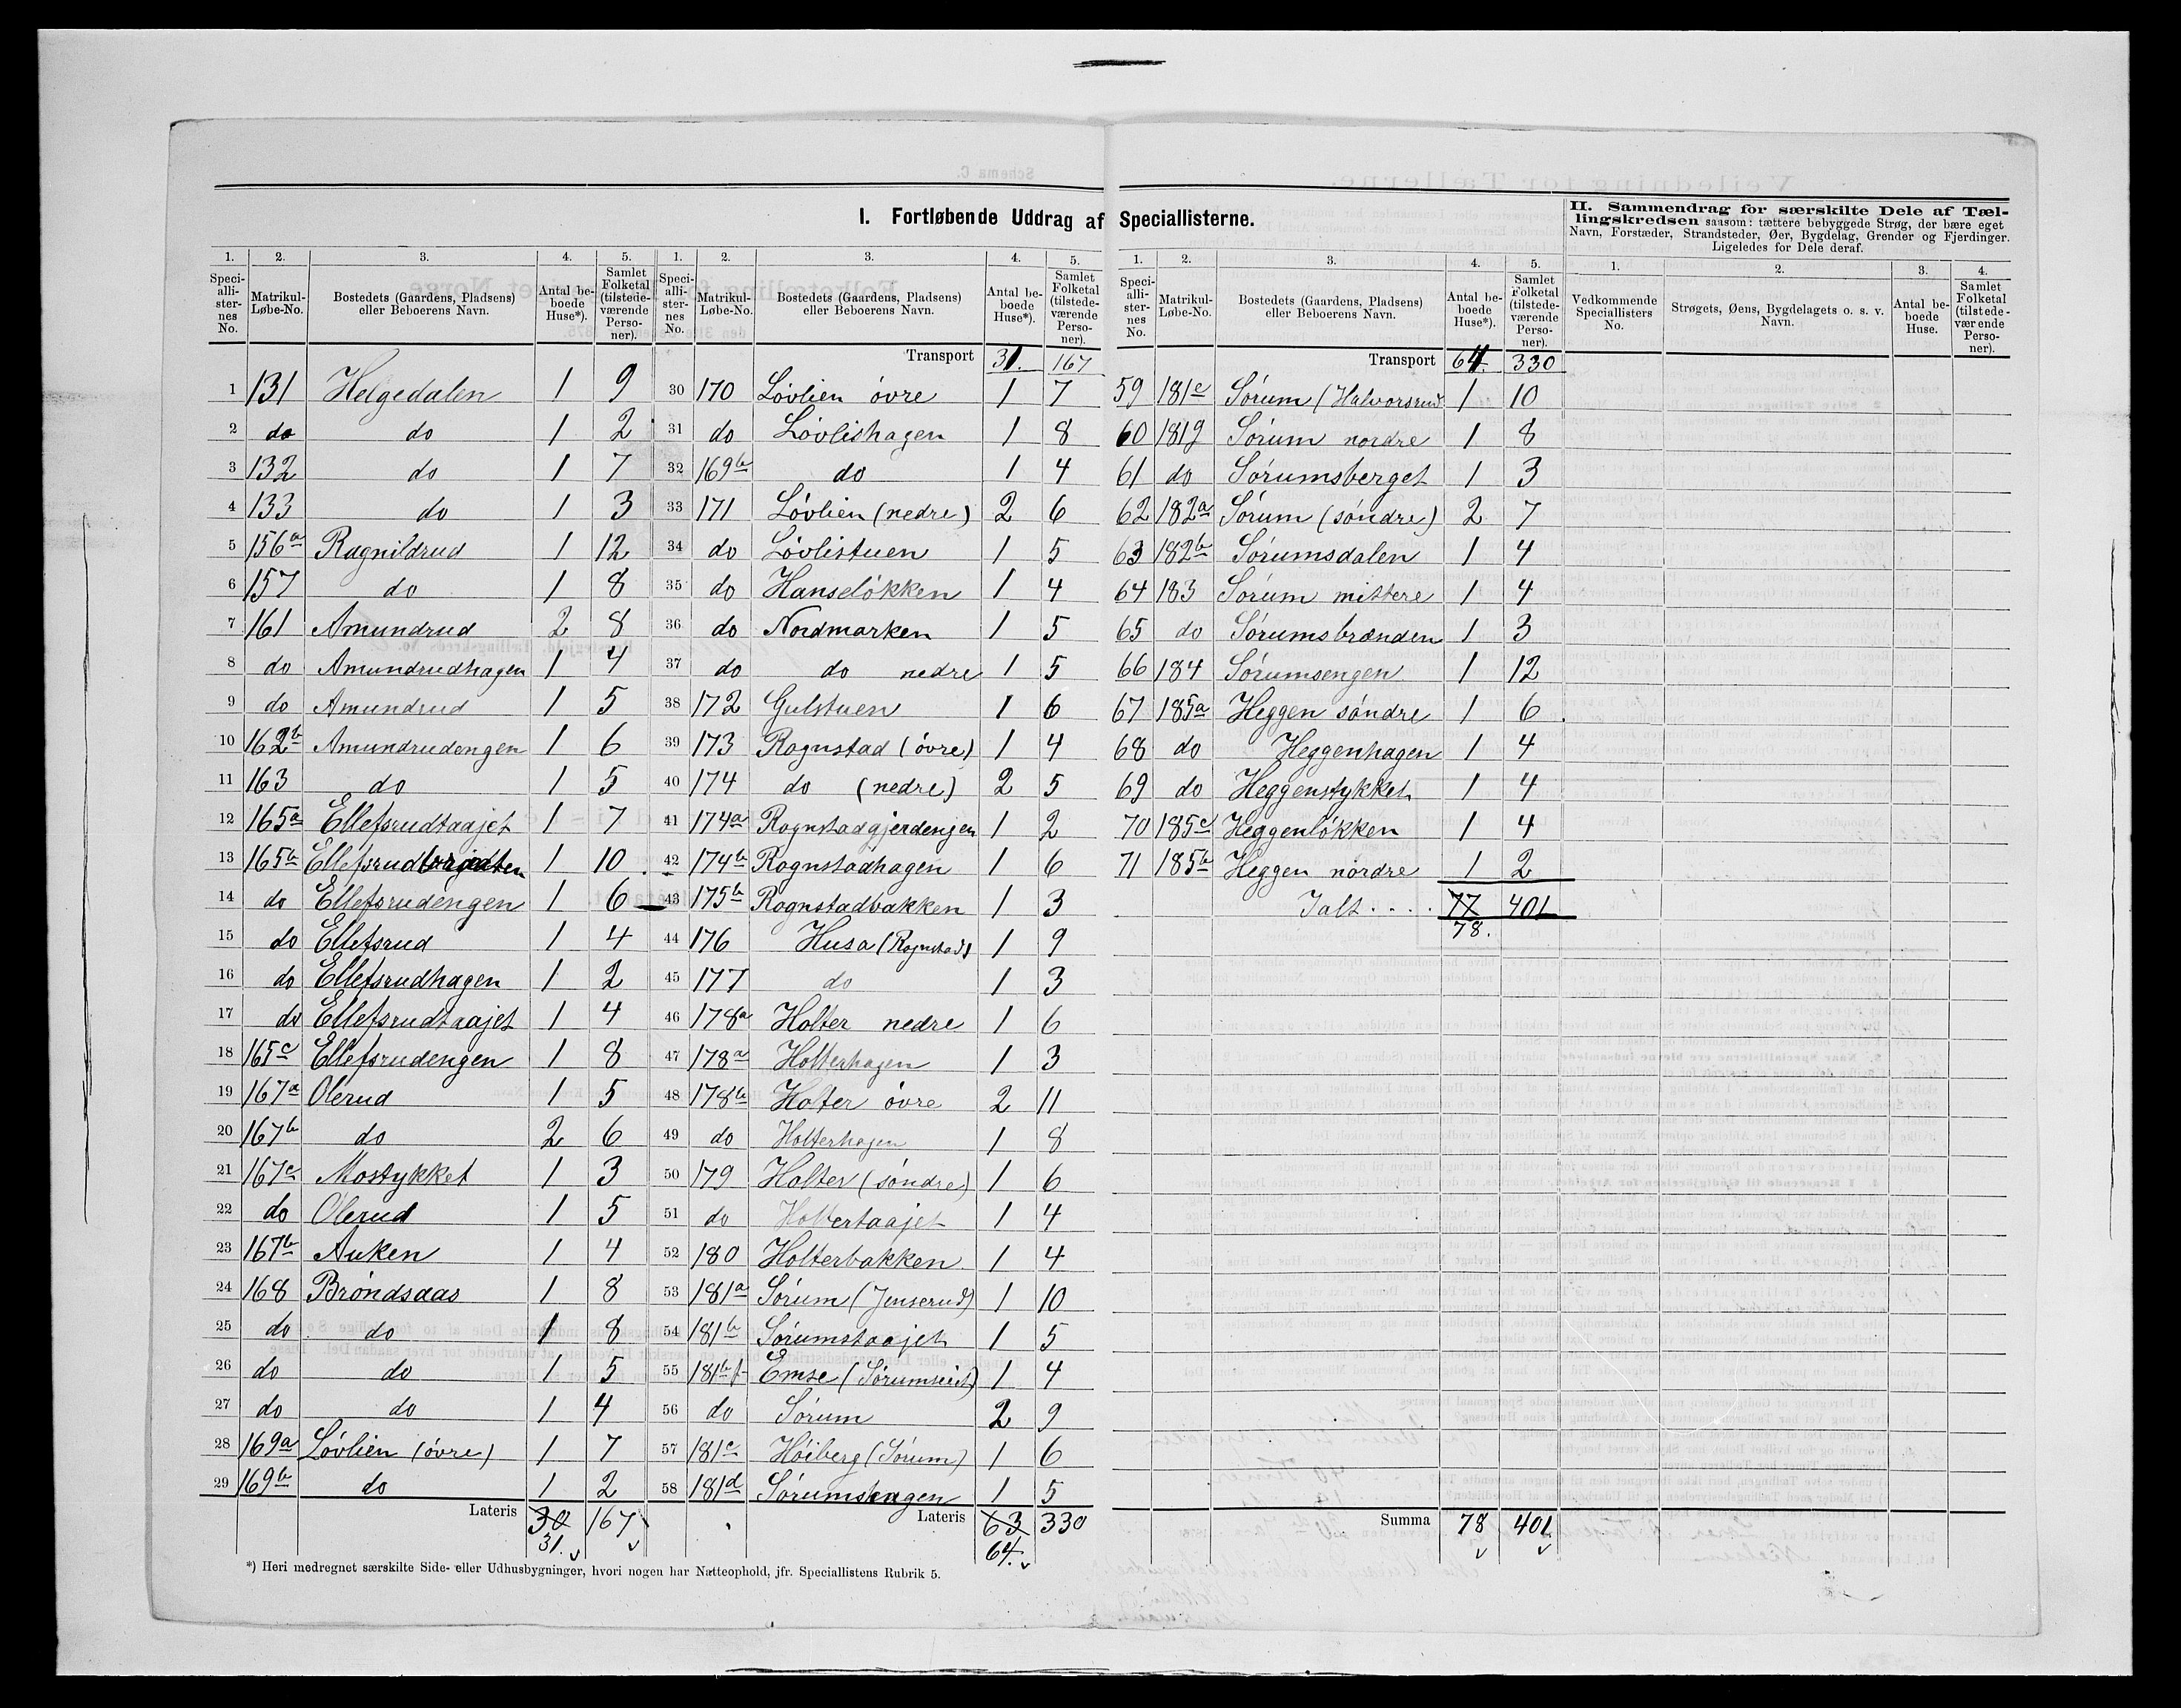 I. Fortløbende Uddrag af Speciallisterne.
II. Sammendrag for særskilte Dele af Tællingskredsen saasom: tættere bebyggede Strøg, der bære eget Navn, Forstæder, Strandsteder, Øer, Bygdelag, Grender og Fjerdinger. Ligeledes for Dele deraf.
1. 2. 3. 4. 5.
Speciallisternes No. Matrikul-Løbe-No. Bostedets (Gaardens, Pladsens) eller Beboerens Navn. Antal beboede Huse*). Samlet Folketal (tilstedeværende Personer).
1 131 Helgedalen 1 9
2 do do 1 2
3 132 do 1 7
4 133 do 1 3
5 156a Ragnildrud 1 12
6 157 do 1 8
7 161 Amundrud 2 8
8 do Amundrudhagen 1 4
9 do Amundrud 1 5
10 162b Amundrudengen 1 6
11 163 do 1 5
12 165a Ellefsrudtaajet 1 7
13 165b 1 10
14 do Ellefsrudengen 1 6
15 do Ellefsrud 1 4
16 do Ellefsrudhagen 1 2
17 do Ellefsrudtaajet 1 4
18 165c Ellefsrudengen 1 8
19 167a Olerud 1 5
20 167b do 2 6
21 167c Mostykket 1 3
22 do Olerud 1 5
23 167b Auken 1 4
24 168 Bröndsaas 1 8
25 do do 1 8
26 do do 1 5
27 do do 1 4
28 169a Lövlien (övre) 1 7
29 169b do 1 2
Lateris 30 167
31.
1. 2. 3. 4. 5.
Speciallisternes No. Matrikul-Løbe-No. Bostedets (Gaardens, Pladsens) eller Beboerens Navn. Antal beboede Huse*). Samlet Folketal (tilstedeværende Personer).
Transport 31. 167
30 170 Lövlien övre 1 7
31 do Lövlishagen 1 8
32 169b do 1 4
33 171 Lövlien (nedre) 2 6
34 do Lövlistuen 1 5
35 do Hanselökken 1 4
36 do Nordmarken 1 5
37 do do nedre 1 5
38 172 Gulstuen 1 6
39 173 Rognstad (övre) 1 4
40 174 do (nedre) 2 5
41 174a Rognstadgjerdengen 1 2
42 174b Rognstadhagen 1 6
43 175b Rognstadbakken 1 3
44 176 Husa (Rognstad) 1 9
45 177 do 1 3
46 178a Holter nedre 1 6
47 178a Holterhagen 1 3
48 178b Holter övre 2 11
49 do Holterhagen 1 8
50 179 Holter (söndre) 1 6
51 do Holtertaajet 1 4
52 180 Holterbakken 1 4
53 181a Sörum (Jenserud) 1 10
54 181b Sörumstaajet 1 5
55 181b f Emse 1 4
56 do Sörum 2 9
57 181c Höiberg (Sörum) 1 6
58 181d 1 5
Lateris 63 330
64.
1. 2. 3. 4. 5.
Speciallisternes No. Matrikul-Løbe-No. Bostedets (Gaardens, Pladsens) eller Beboerens Navn. Antal beboede Huse*). Samlet Folketal (tilstedeværende Personer).
Transport 64. 330
59 181e Sörum (Halvorsrud 1 10
60 181g Sörum nordre 1 8
61 do Sörumsberget 1 3
62 182a Sörum (söndre) 2 7
63 182b Sörumsdalen 1 4
64 183 Sörum mittere 1 4
65 do Sörumsbrænden 1 3
66 184 Sörumsengen 1 12
67 185a Heggen söndre 1 6
68 do Heggenhagen 1 4
69 do Heggenstykket 1 4
70 185c Heggenlökken 1 4
71 185b Heggen nördre 1 2
Ialt .... 77 401
78.
Summa 78 401
1. 2. 3. 4.
Vedkommende Speciallisters No. Strøgets, Øens, Bygdelagets o. s. v. Navn. Antal beboede Huse. Samlet Folketal (tilstedeværende Personer).
*) Heri medregnet særskilte Side- eller Udhusbygninger, hvori nogen har Natteophold, jfr. Speciallistens Rubrik 5.